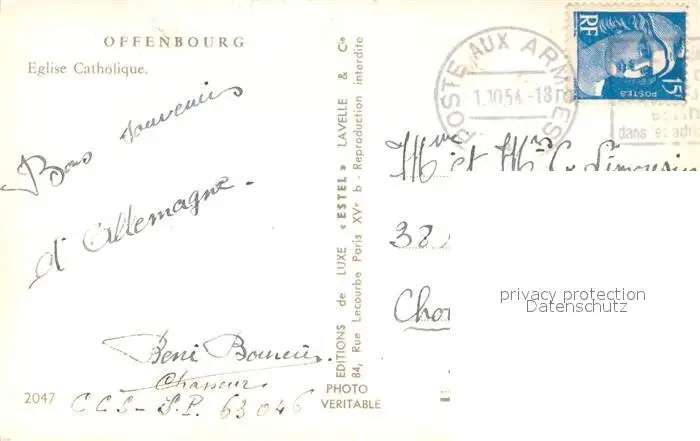 OFFENBOURG
Eglise Catholique.
Bons souvenirs
d'Allemagne.
Chasseur
CCS - S.P. 63046
2047
PHOTO
VERITABLE
EDITIONS de LUXE « ESTEL » LAVELLE & Cie
84, Rue Lecourbe Paris XVe b - Reproduction interdite
POSTE AUX ARMEES
1.10.54 - 18
RF
POSTES
15F
dans
Mme et Mr C. Limousin
38
Cho
privacy protection
Datenschutz